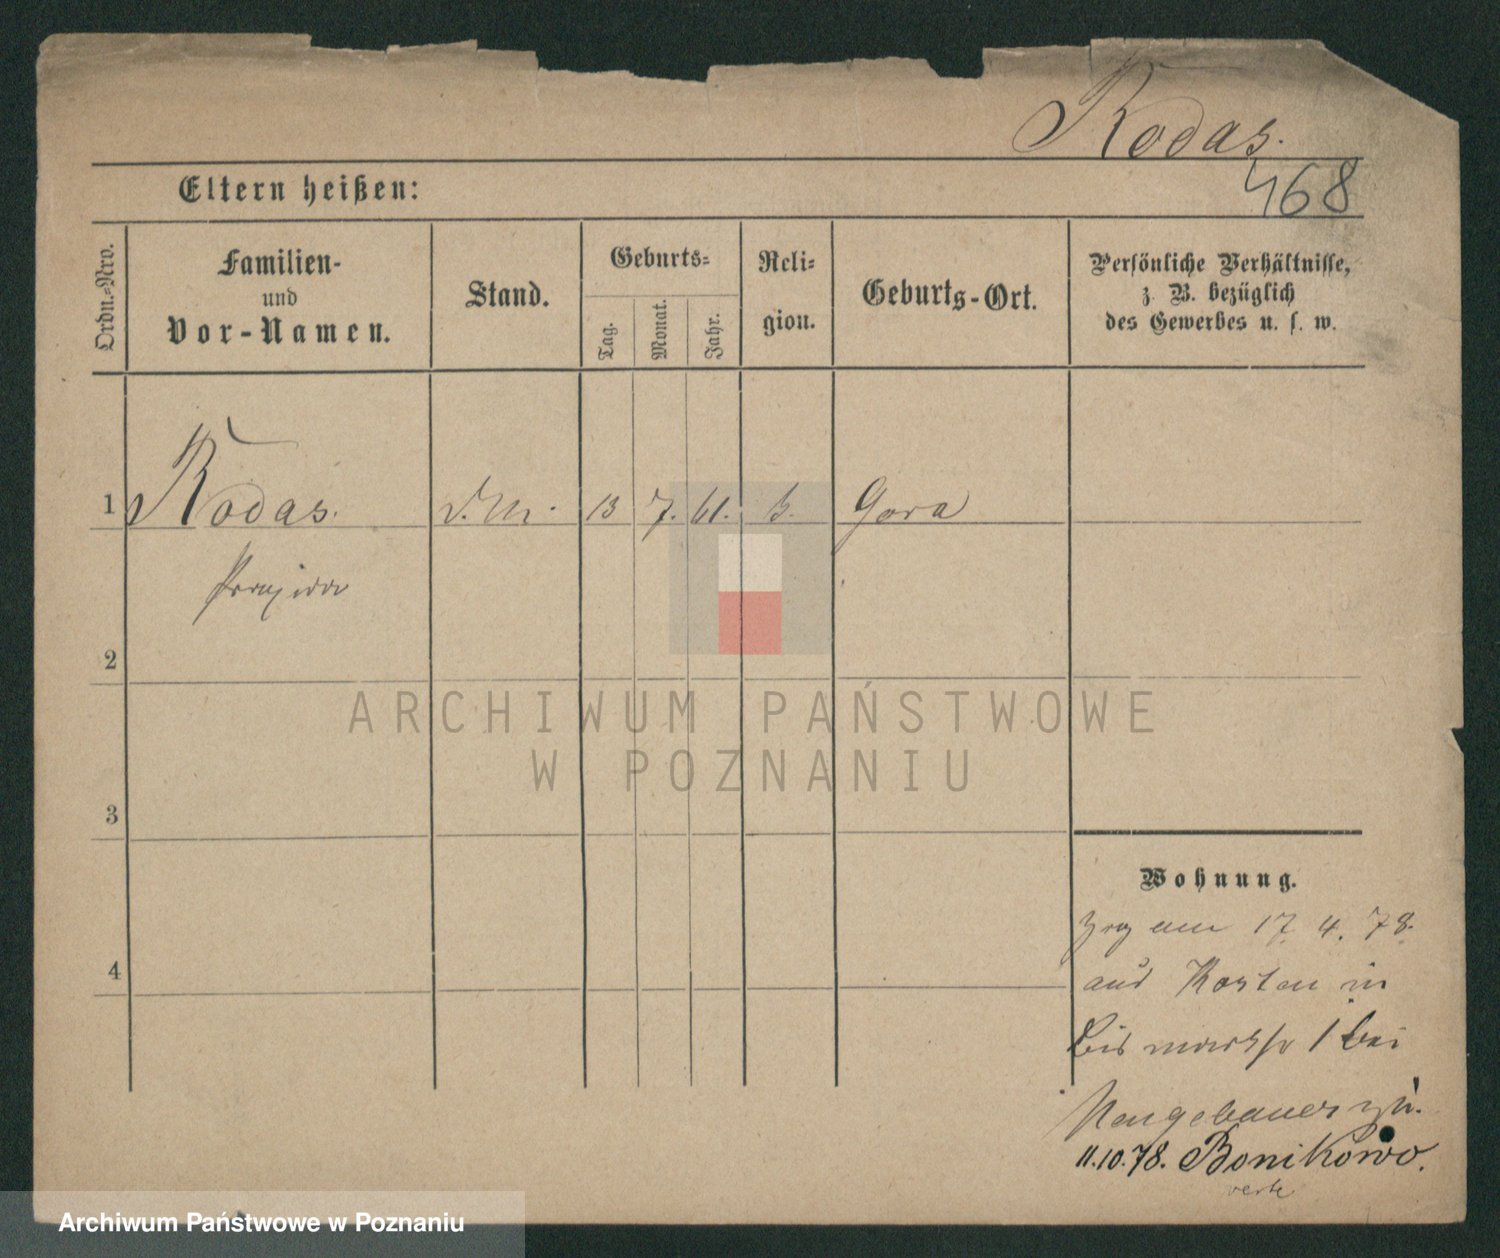 Rodas.
468
Eltern heißen:
Ordn.-Nro.
Familien-
und
Vor-Namen.
Stand.
Geburts-
Tag.
Monat.
Jahr.
Reli-
gion.
Geburts-Ort.
Persönliche Verhältnisse,
z. B. bezüglich
des Gewerbes u. s. w.
1
Rodas.
13
7.
61.
Gora
2
3
4
Wohnung.
17. 4. 78.
aus Kosten in
Bismarckstr 1 bei
Neugebauer zu.
11.10.78. Bonikowo.
ARCHIWUM PAŃSTWOWE
W POZNANIU
Archiwum Państwowe w Poznaniu